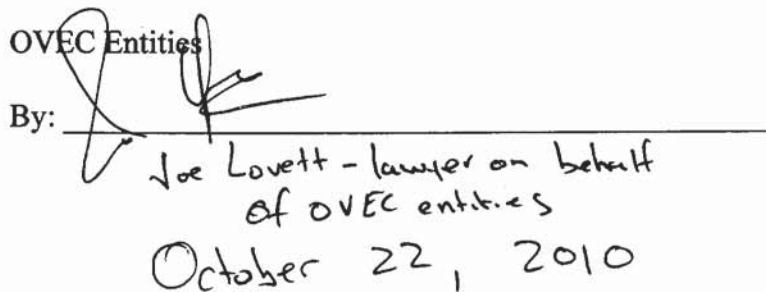 OVEC Entities
By:
Joe Lovett - lawyer on behalf
of OVEC entities
October 22, 2010